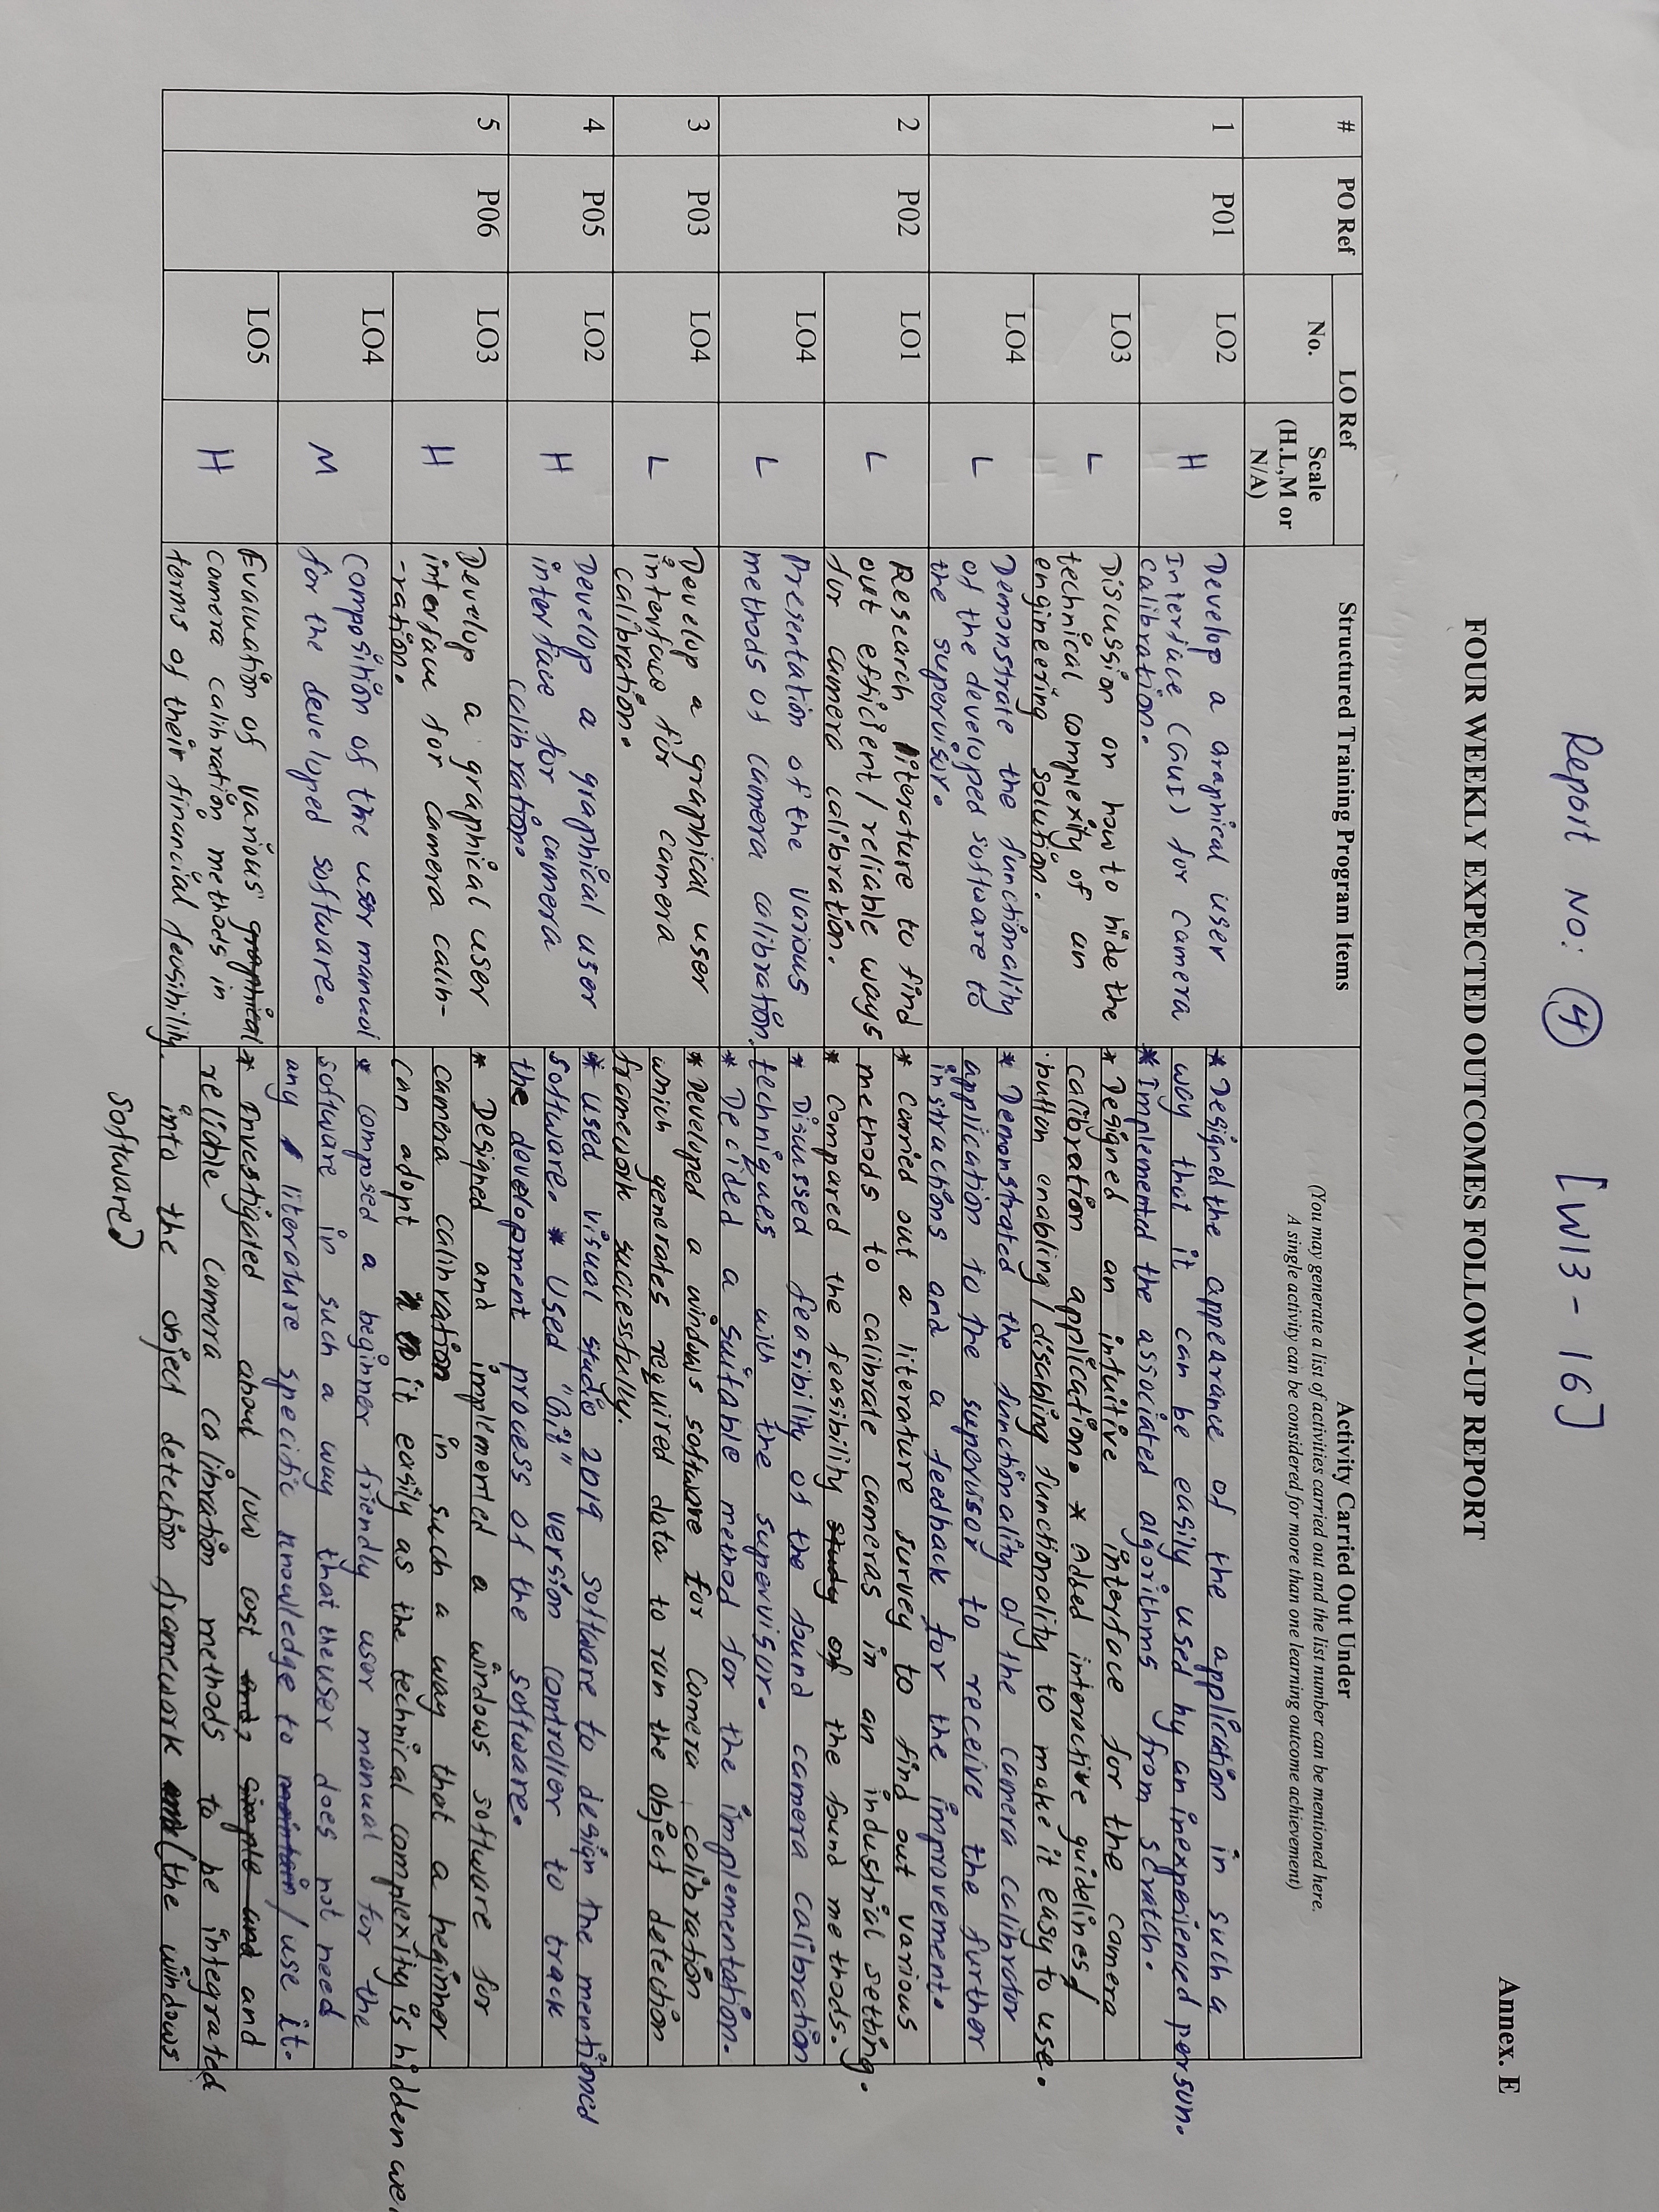 Report No: 4 [W13 - 16]
Annex. E
FOUR WEEKLY EXPECTED OUTCOMES FOLLOW-UP REPORT
# PO Ref LO Ref Structured Training Program Items Activity Carried Out Under
No. Scale (H.L,M or N/A)
(You may generate a list of activities carried out and the list number can be mentioned here.
A single activity can be considered for more than one learning outcome achievement)
1 P01 LO2 H
Develop a Graphical user
Interface (GUI) for camera
calibration.
* Designed the appearance of the application in such a
way that it can be easily used by an inexperienced person.
* Implemented the associated algorithms from scratch.
LO3 L
Disussion on how to hide the
technical complexity of an
engineering solution.
* Designed an intuitive interface for the camera
calibration application. * Added interactive guidelines/
button enabling/disabling functionality to make it easy to use.
LO4 L
Demonstrate the functionality
of the developed software to
the supervisor.
* Demonstrated the functionality of the camera calibrator
application to the supervisor to receive the further
instractions and a feedback for the improvement.
2 P02 LO1 L
Research literature to find
out efficient/reliable ways
for camera calibration.
* Carried out a literature survey to find out various
methods to calibrate cameras in an industrial setting.
* Compared the feasibility study of the found methods.
LO4 L
Presentation of the various
methods of camera calibration.
* Disussed feasibility of the found camera calibration
techniques with the supervisor.
* Decided a suitable method for the implementation.
3 P03 LO4 L
Develop a graphical user
interface for camera
calibration.
* Developed a windows software for camera calibration
which generates required data to run the object detection
framework successfully.
4 P05 LO2 H
Develop a graphical user
interface for camera
calibration.
* used visual studio 2019 software to design the mentioned
software. * Used "Git" version controller to track
the development process of the software.
5 P06 LO3 H
Develop a graphical user
interface for camera calib-
-ration.
* Designed and implemented a windows software for
camera calibration in such a way that a beginner
can adopt it easily as the technical complexity is hidden
LO4 M
Composition of the user manual
for the developed software.
* composed a beginner friendly user manual for the
software in such a way that the user does not need
any literature specific knowledge to maintain/use it.
LO5 H
Evaluation of various graphical
camera calibration methods in
terms of their financial feasibility.
* Investigated about low cost simple and and
reliable camera calibration methods to be integrated
into the object detection framework (the windows
software)